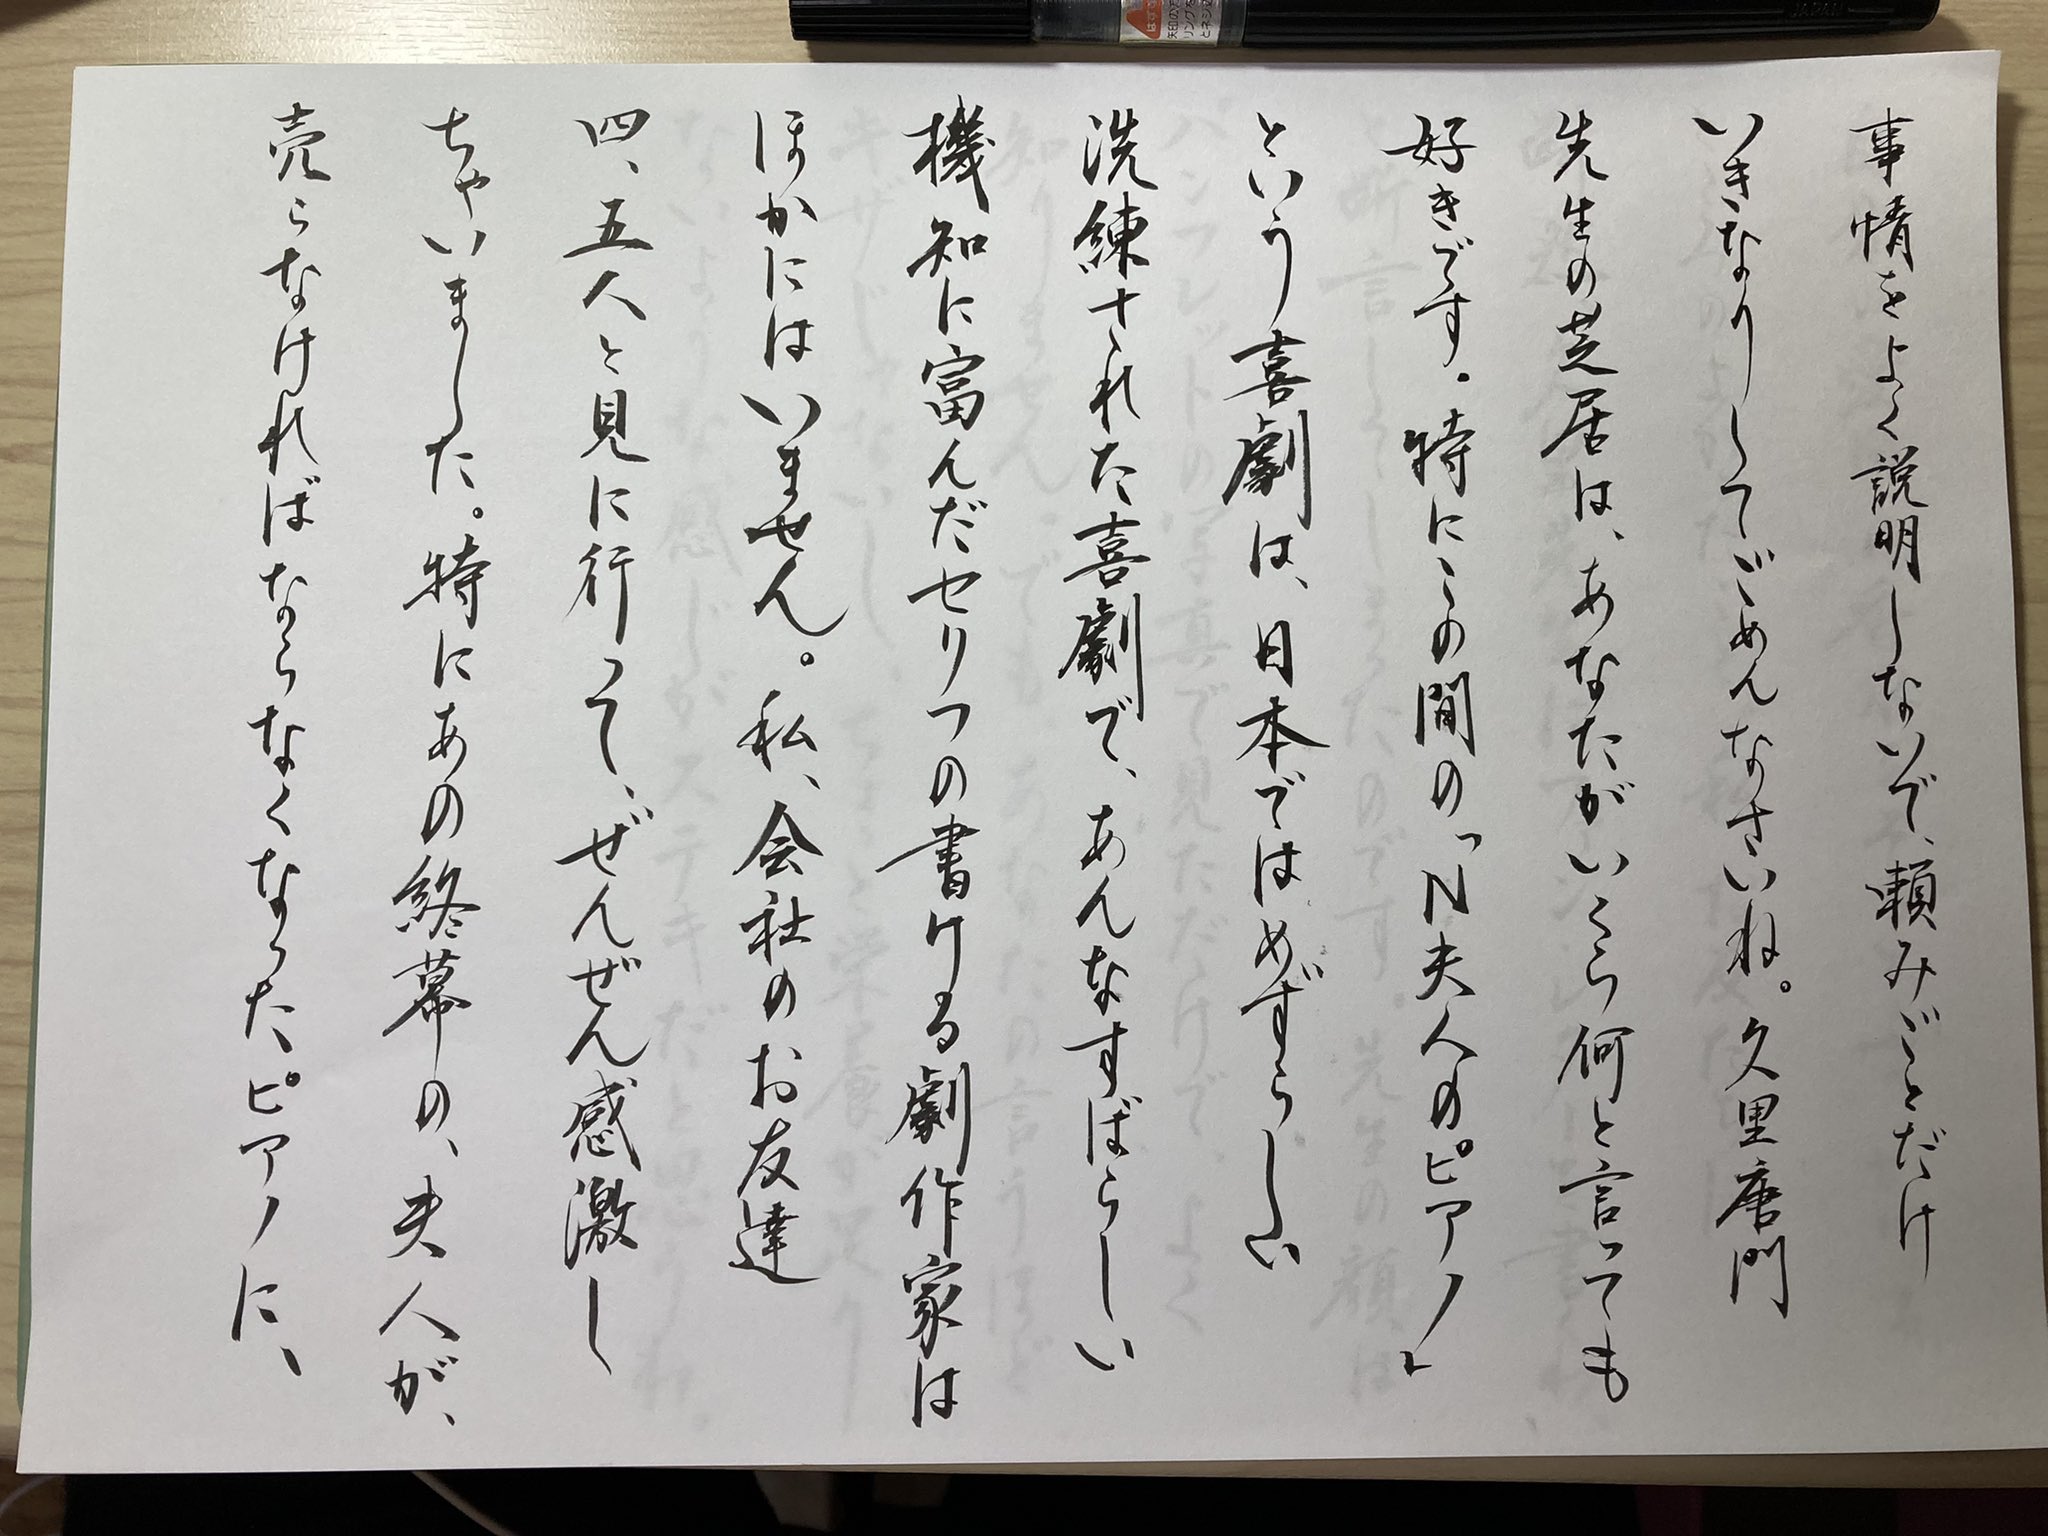 事情をよく説明しないで、頼みごとだけ
いきなりしてごめんなさいね。久里唐門
先生の芝居は、あなたがいくら何と言っても
好きです。特にこの間の「N夫人のピアノ」
という喜劇は、日本ではめずらしい
洗練された喜劇で、あんなすばらしい
機知に富んだセリフの書ける劇作家は
ほかにはいません。私、会社のお友達
四、五人と見に行って、ぜんぜん感激し
ちゃいました。特にあの終幕の、夫人が、
売らなければならなくなったピアノに、
JAPAN